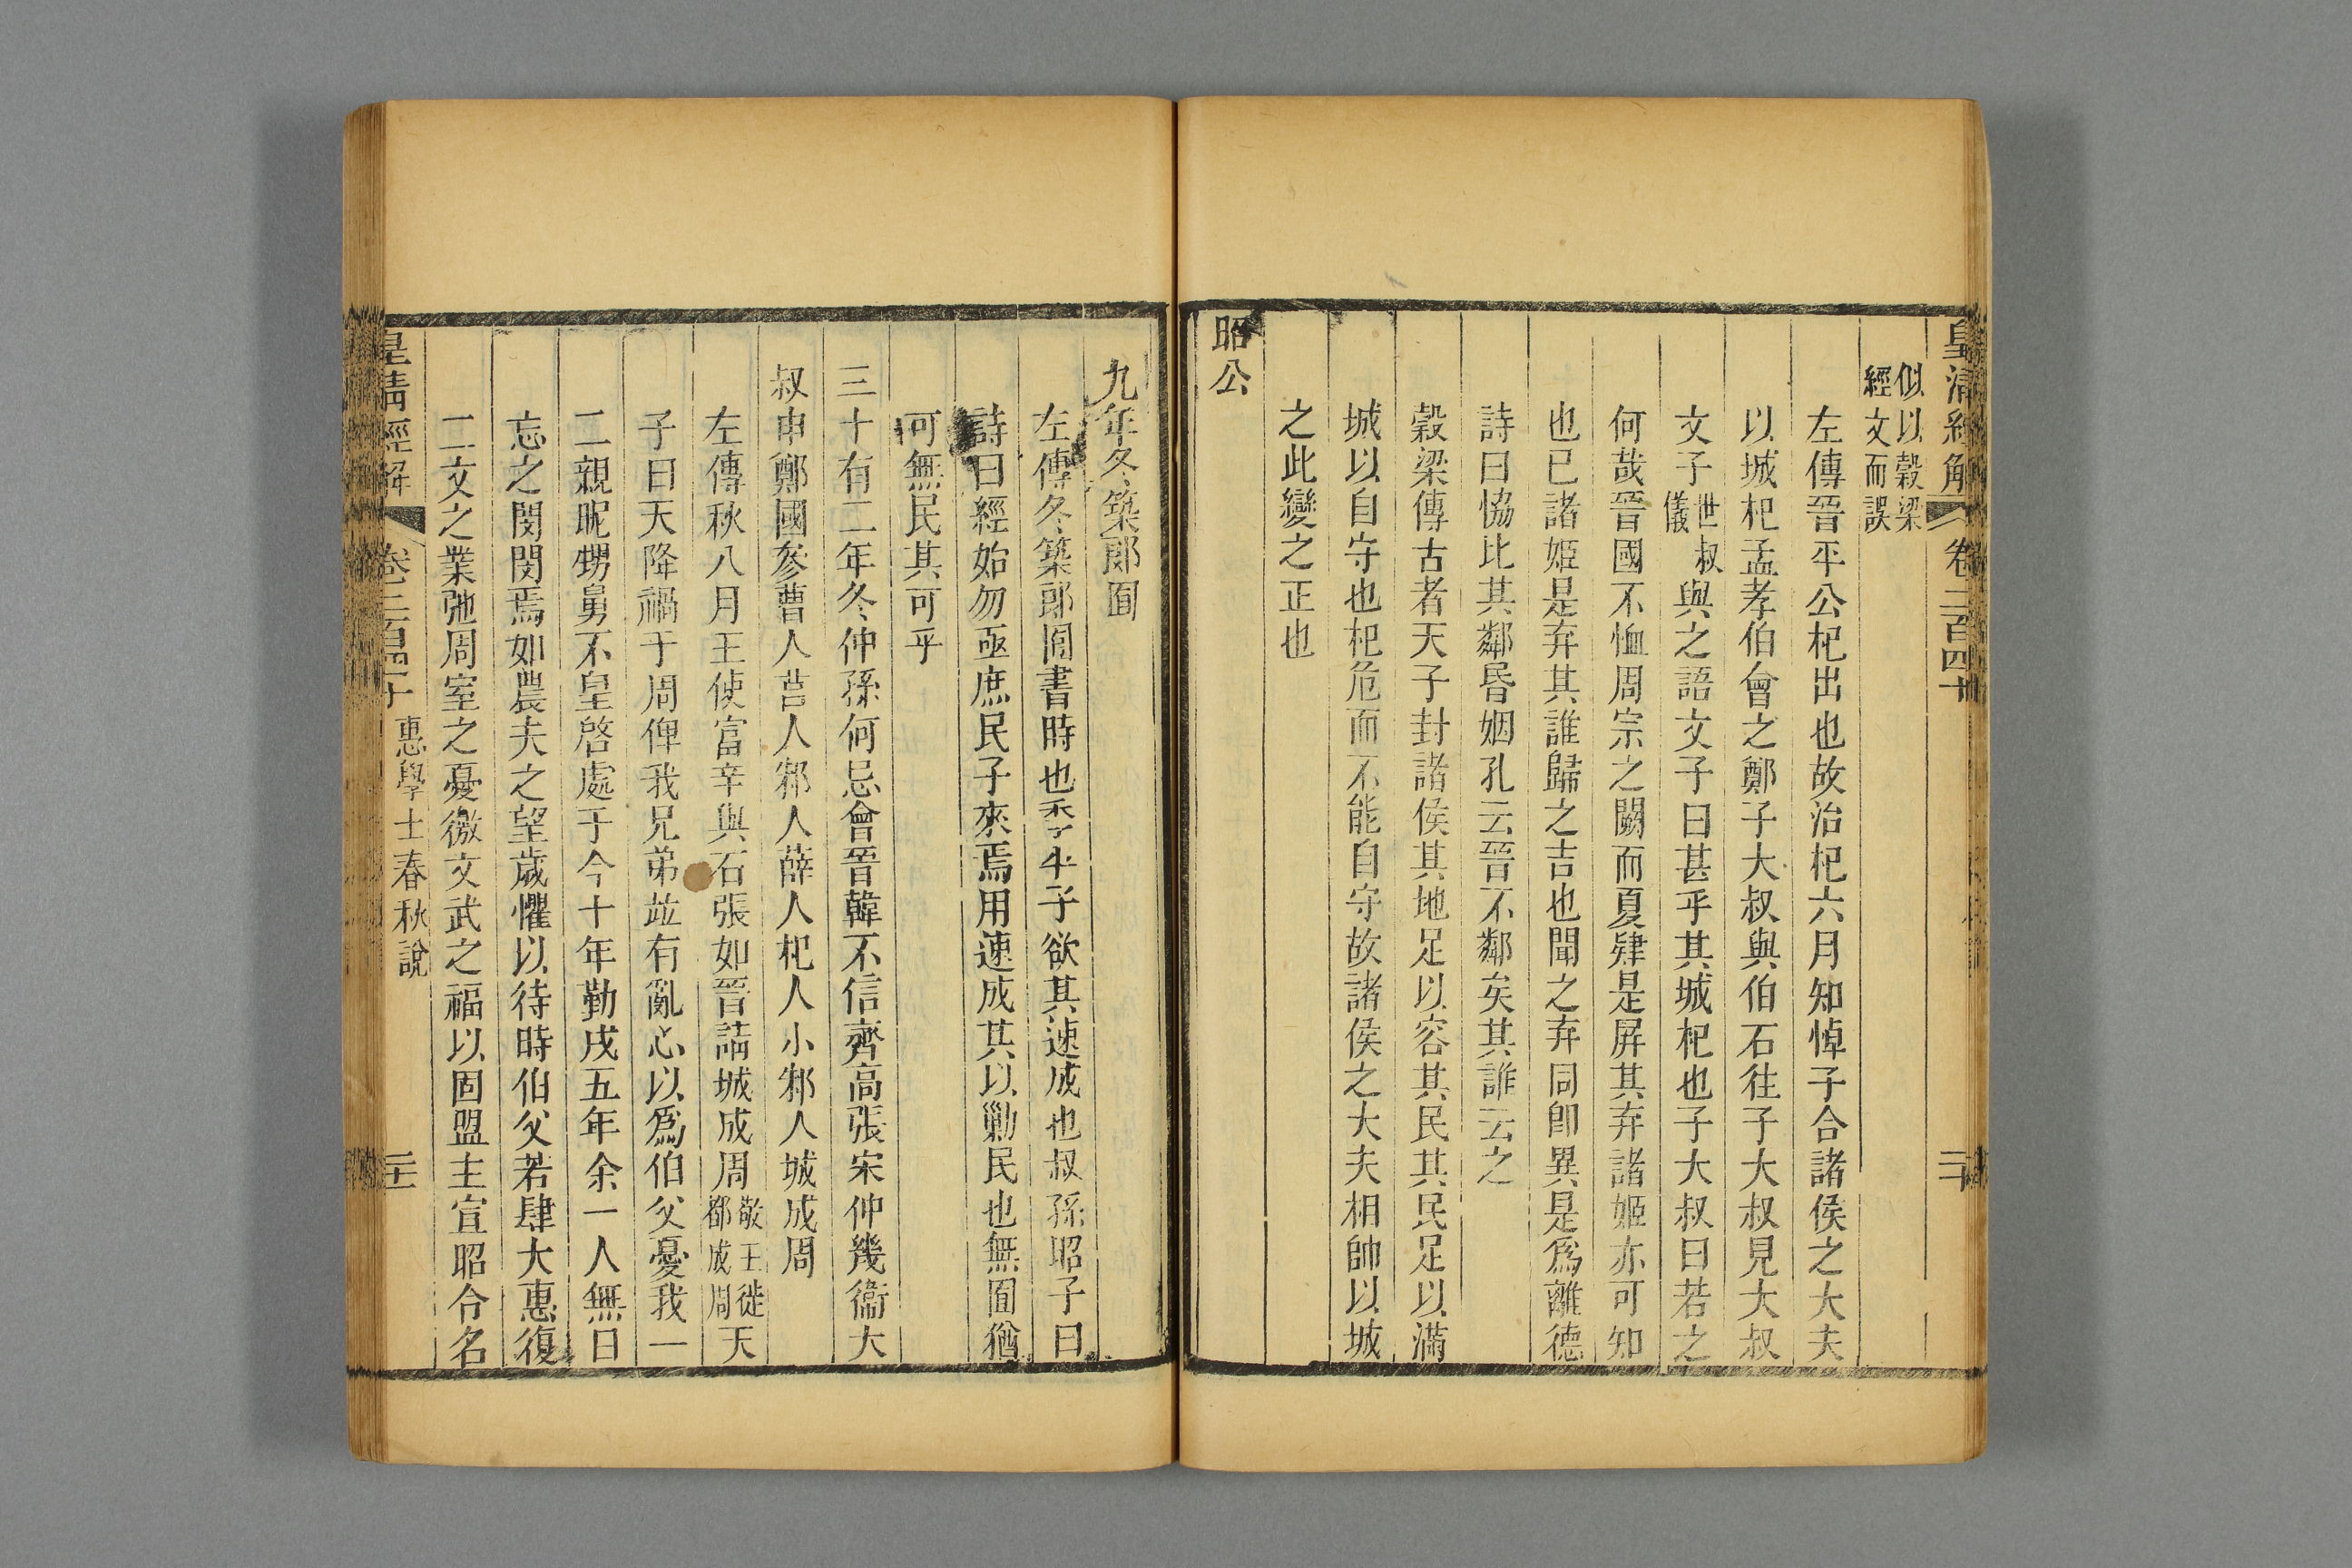 皇清經解
卷二百四十
二十
似以穀梁
經文而誤
左傳晉平公杞出也故治杞六月知悼子合諸侯之大夫
以城杞孟孝伯會之鄭子大叔與伯石往子大叔見大叔
文子世叔儀與之語文子曰甚乎其城杞也子大叔曰若之
何哉晉國不恤周宗之闕而夏肄是屏其弃諸姬亦可知
也已諸姬是弃其誰歸之吉也聞之弃同卽異是爲離德
詩曰協比其鄰昏姻孔云晉不鄰矣其誰云之
穀梁傳古者天子封諸侯其地足以容其民其民足以滿
城以自守也杞危而不能自守故諸侯之大夫相帥以城
之此變之正也
昭公
九年冬築郎囿
左傳冬築郎囿書時也季平子欲其速成也叔孫昭子曰
詩曰經始勿亟庶民子來焉用速成其以勦民也無囿猶
可無民其可乎
三十有二年冬仲孫何忌會晉韓不信齊高張宋仲幾衞大
叔申鄭國參曹人莒人邾人薛人杞人小邾人城成周
左傳秋八月王使富辛與石張如晉請城成周敬王徙都成周天
子曰天降禍于周俾我兄弟竝有亂心以爲伯父憂我一
二親昵甥舅不皇啓處于今十年勤戍五年余一人無日
忘之閔閔焉如農夫之望歲懼以待時伯父若肆大惠復
二文之業弛周室之憂徼文武之福以固盟主宣昭令名
皇清經解
卷二百四十
惠學士春秋說
二十一